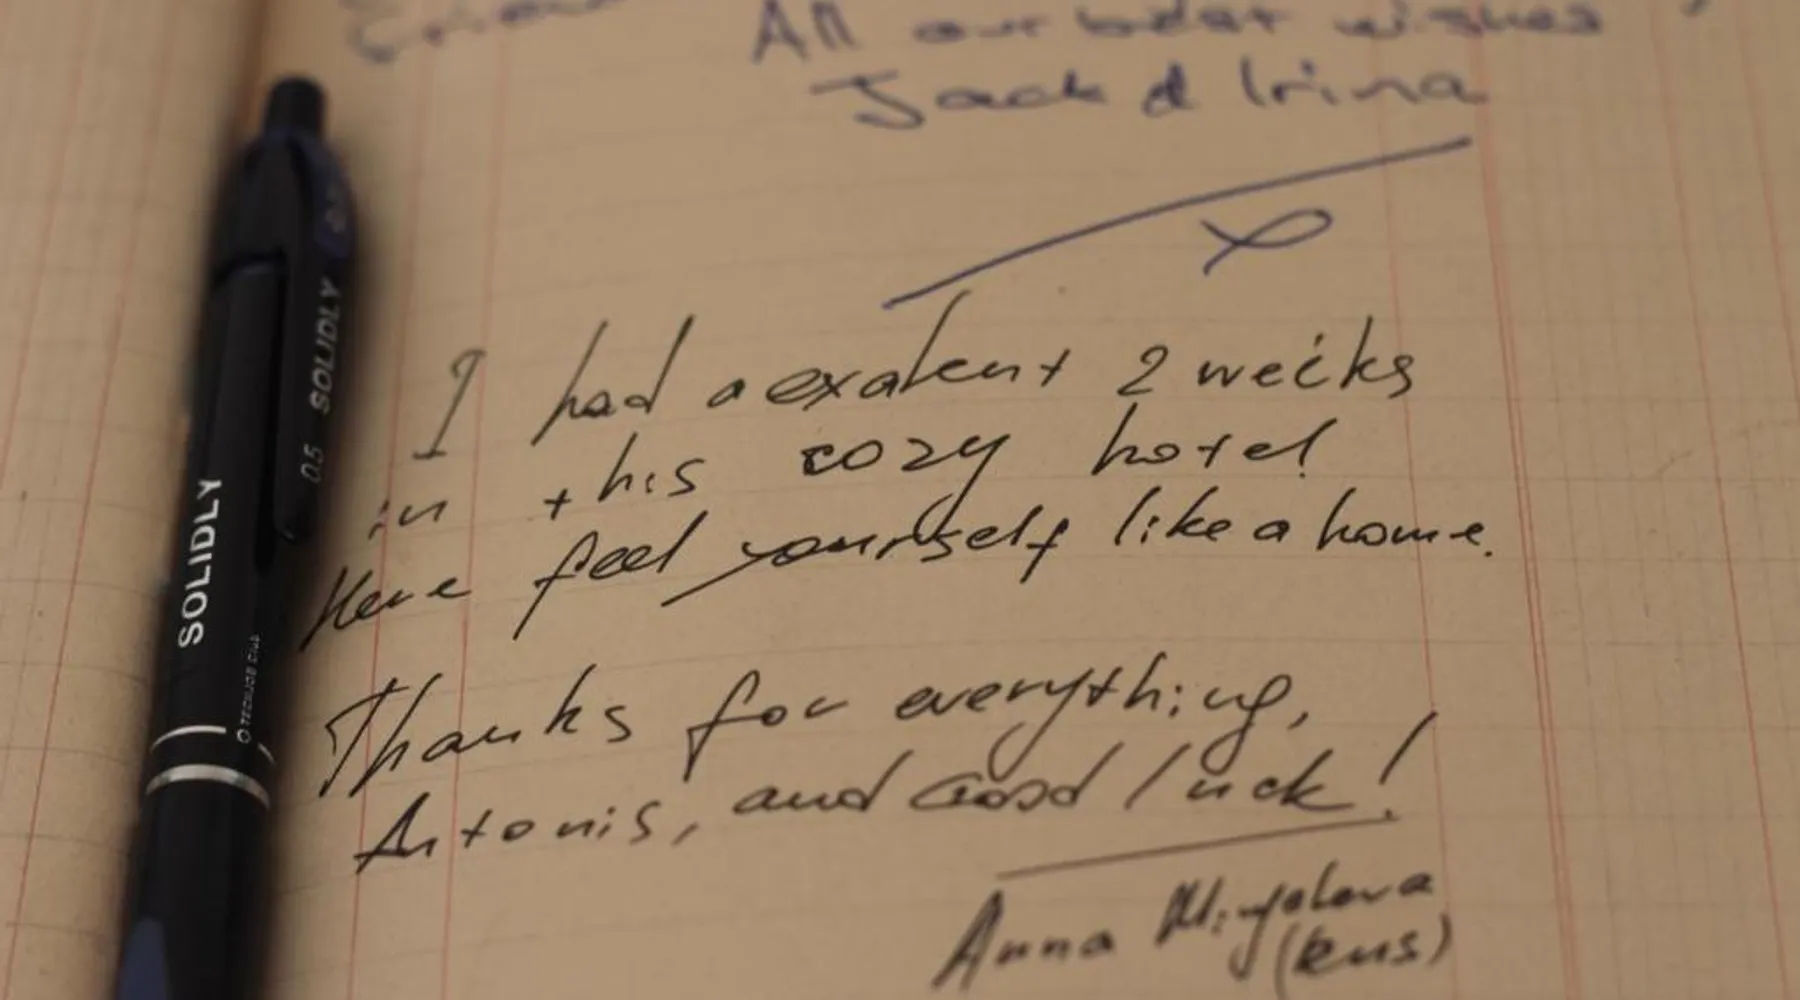 All our best wishes
Jack & Irina
I had a exalent 2 weeks
in this cozy hotel
Here feel yourself like a home.
Thanks for everything,
Antonis, and Good luck!
Anna
(Rus)
SOLIDLY
0.5 SOLIDLY